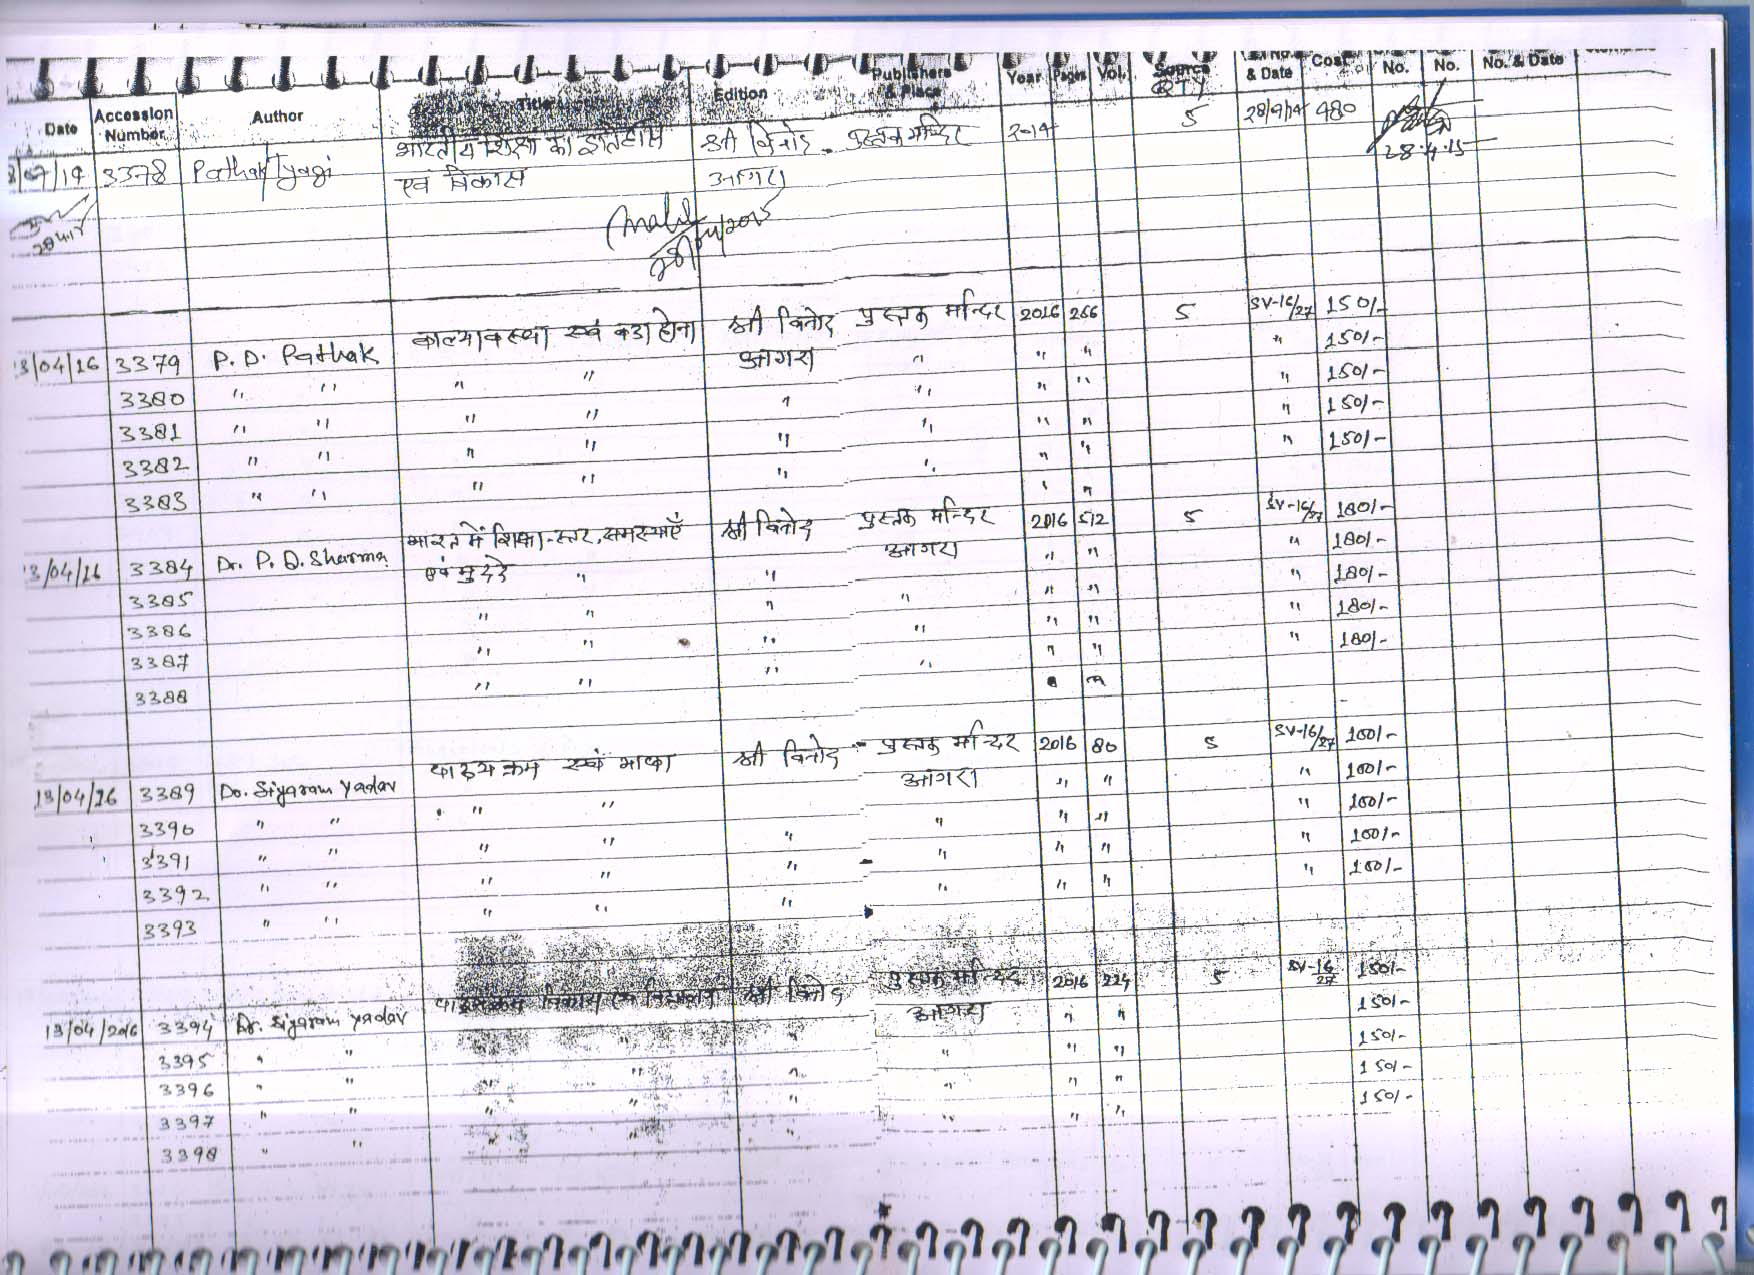 Date Accession Number Author Title Edition Publishers & Place Year Pages Vol. Source (QTY) & Date Cost No. No. No. & Date
3378 Pathak/Tyagi भारतीय शिक्षा का इतिहास श्री विनोद - पुस्तक मन्दिर 2014 5 980
एवं विकास आगरा
28.4.15
13/04/16 3379 P. D. Pathak बाल्यावस्था एवं बडा होना श्री विनोद पुस्तक मन्दिर 2016 256 5 SV-16/27 150/-
आगरा " " " " 150/-
3380 " " " " " " " " " 150/-
3381 " " " " " " " " " 150/-
3382 " " " " " " " " " 150/-
3383 " " " " " " " "
13/04/16 3384 Dr. P. D. Sharma भारत में शिक्षा-स्तर, समस्याएँ श्री विनोद पुस्तक मन्दिर 2016 512 5 SV-16/27 180/-
एवं मुद्दे " " आगरा " " " 180/-
3385 " " " " " " " 180/-
3386 " " " " " " " 180/-
3387 " " " " " " " 180/-
3388
13/04/16 3389 Dr. Siyaram Yadav पाठ्यक्रम एवं भाषा श्री विनोद - पुस्तक मन्दिर 2016 80 5 SV-16/27 100/-
" " आगरा " " " 100/-
3390 " " " " " " " " " 100/-
3391 " " " " " " " " " 100/-
3392 " " " " " " " " " 100/-
3393 " "
13/04/2016 3394 Dr. Siyaram Yadav पाठ्यक्रम विकास एवं श्री विनोद पुस्तक मन्दिर 2016 224 5 SV-16/27 150/-
आगरा " " 150/-
3395 " " " " " " " 150/-
3396 " " " " " " " 150/-
3397 " " " " " " " " 150/-
3398 " " " "